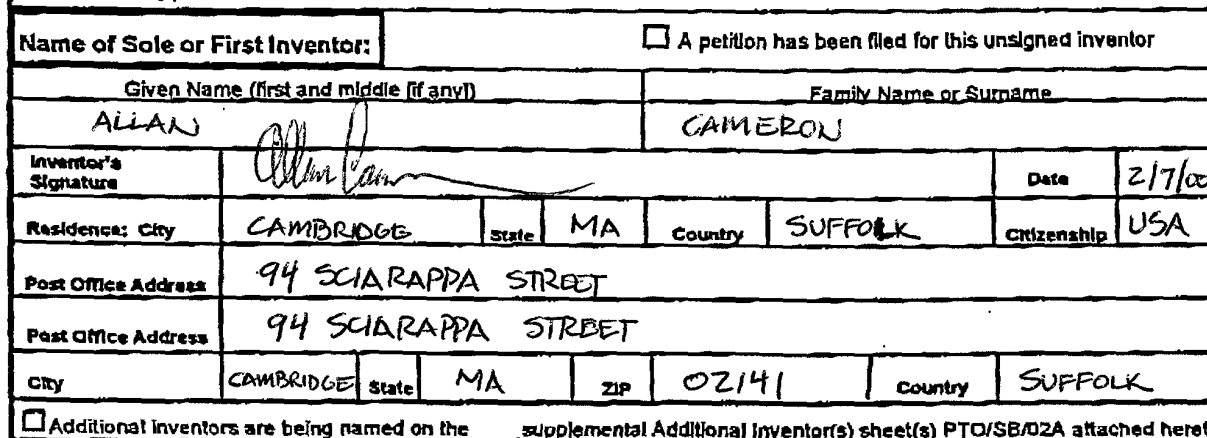 Name of Sole or First Inventor: ☐ A petition has been filed for this unsigned inventor
Given Name (first and middle [if any]) Family Name or Surname
ALLAN CAMERON
Inventor's Signature Allan Cam Date 2/7/00
Residence: City CAMBRIDGE State MA Country SUFFOLK Citizenship USA
Post Office Address 94 SCIARAPPA STREET
Post Office Address 94 SCIARAPPA STREET
City CAMBRIDGE State MA ZIP 02141 Country SUFFOLK
☐ Additional inventors are being named on the supplemental Additional Inventor(s) sheet(s) PTO/SB/02A attached heret